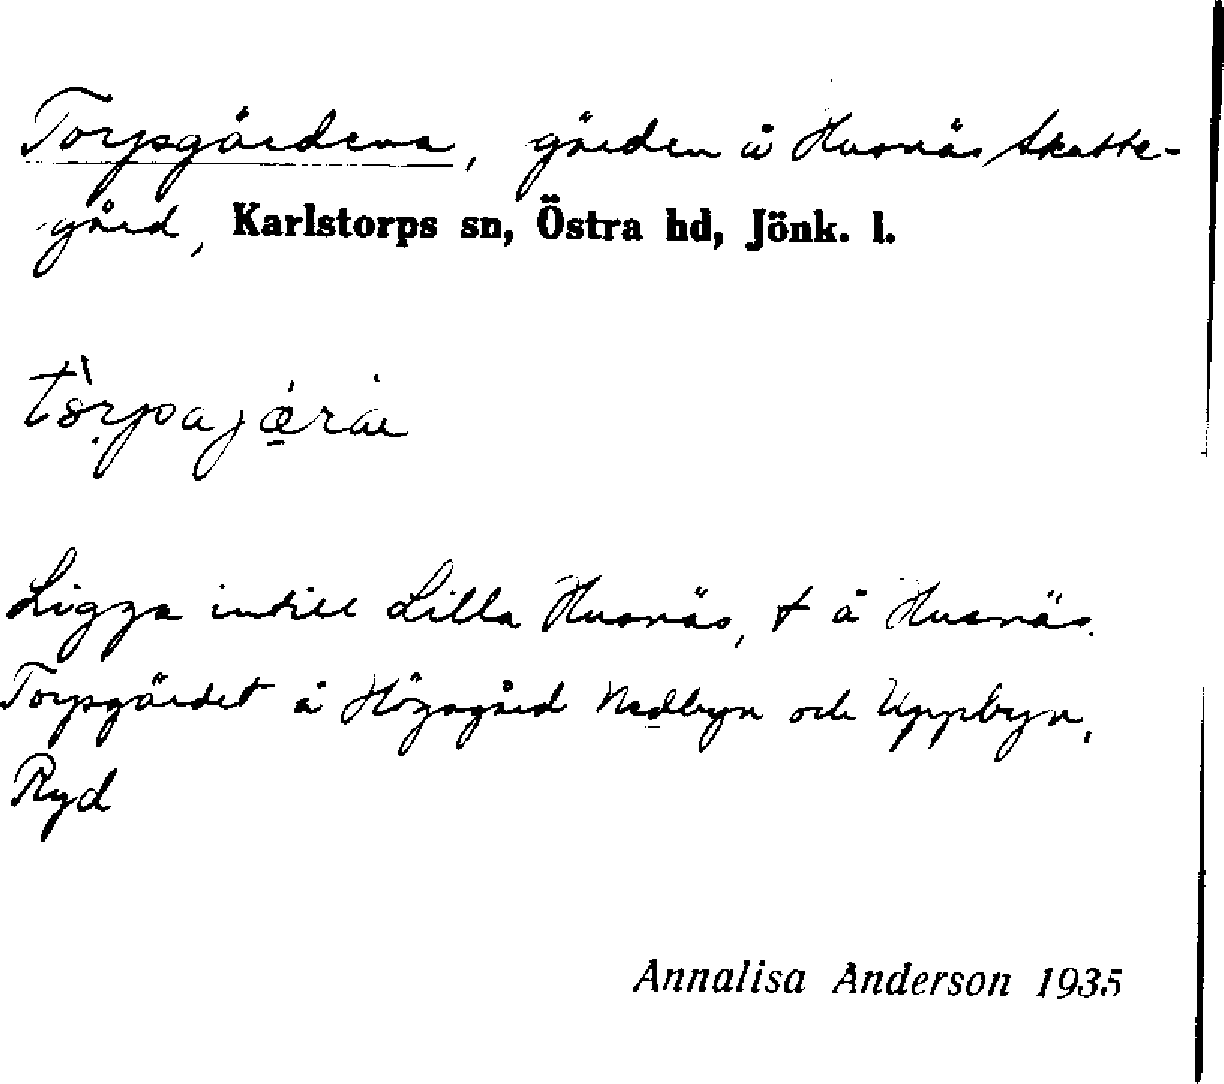 Torpgärdena, gärden å Husnäs Skatte-
gård, Karlstorps sn, Östra hd, Jönk. l.
Ligga intill Lilla Husnäs, t å Husnäs.
Torpgärdet å Högagärd Nedbyn och Uppbyn,
Ryd
Annalisa Anderson 1935